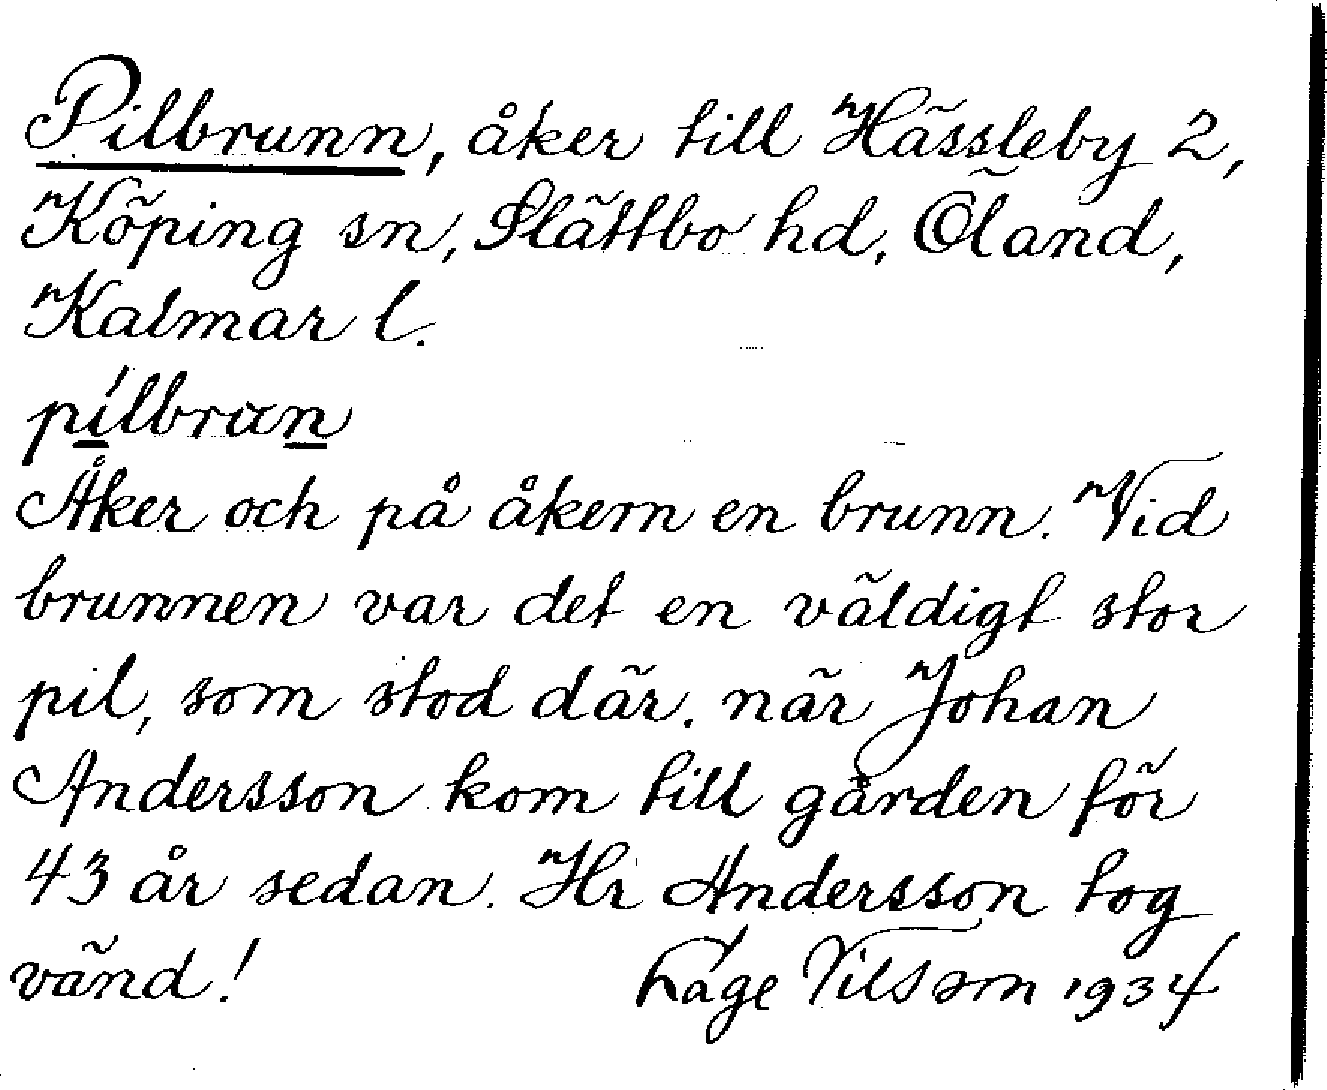 Pilbrunn, åker till Hässleby 2,
Köping sn, Slättbo hd, Öland,
Kalmar l.
pílbrun
Åker och på åkern en brunn. Vid
brunnen var det en väldigt stor
pil, som stod där. när Johan
Andersson kom till gården för
43 år sedan. Hr Andersson tog
vänd! Låge Nilsson 1934